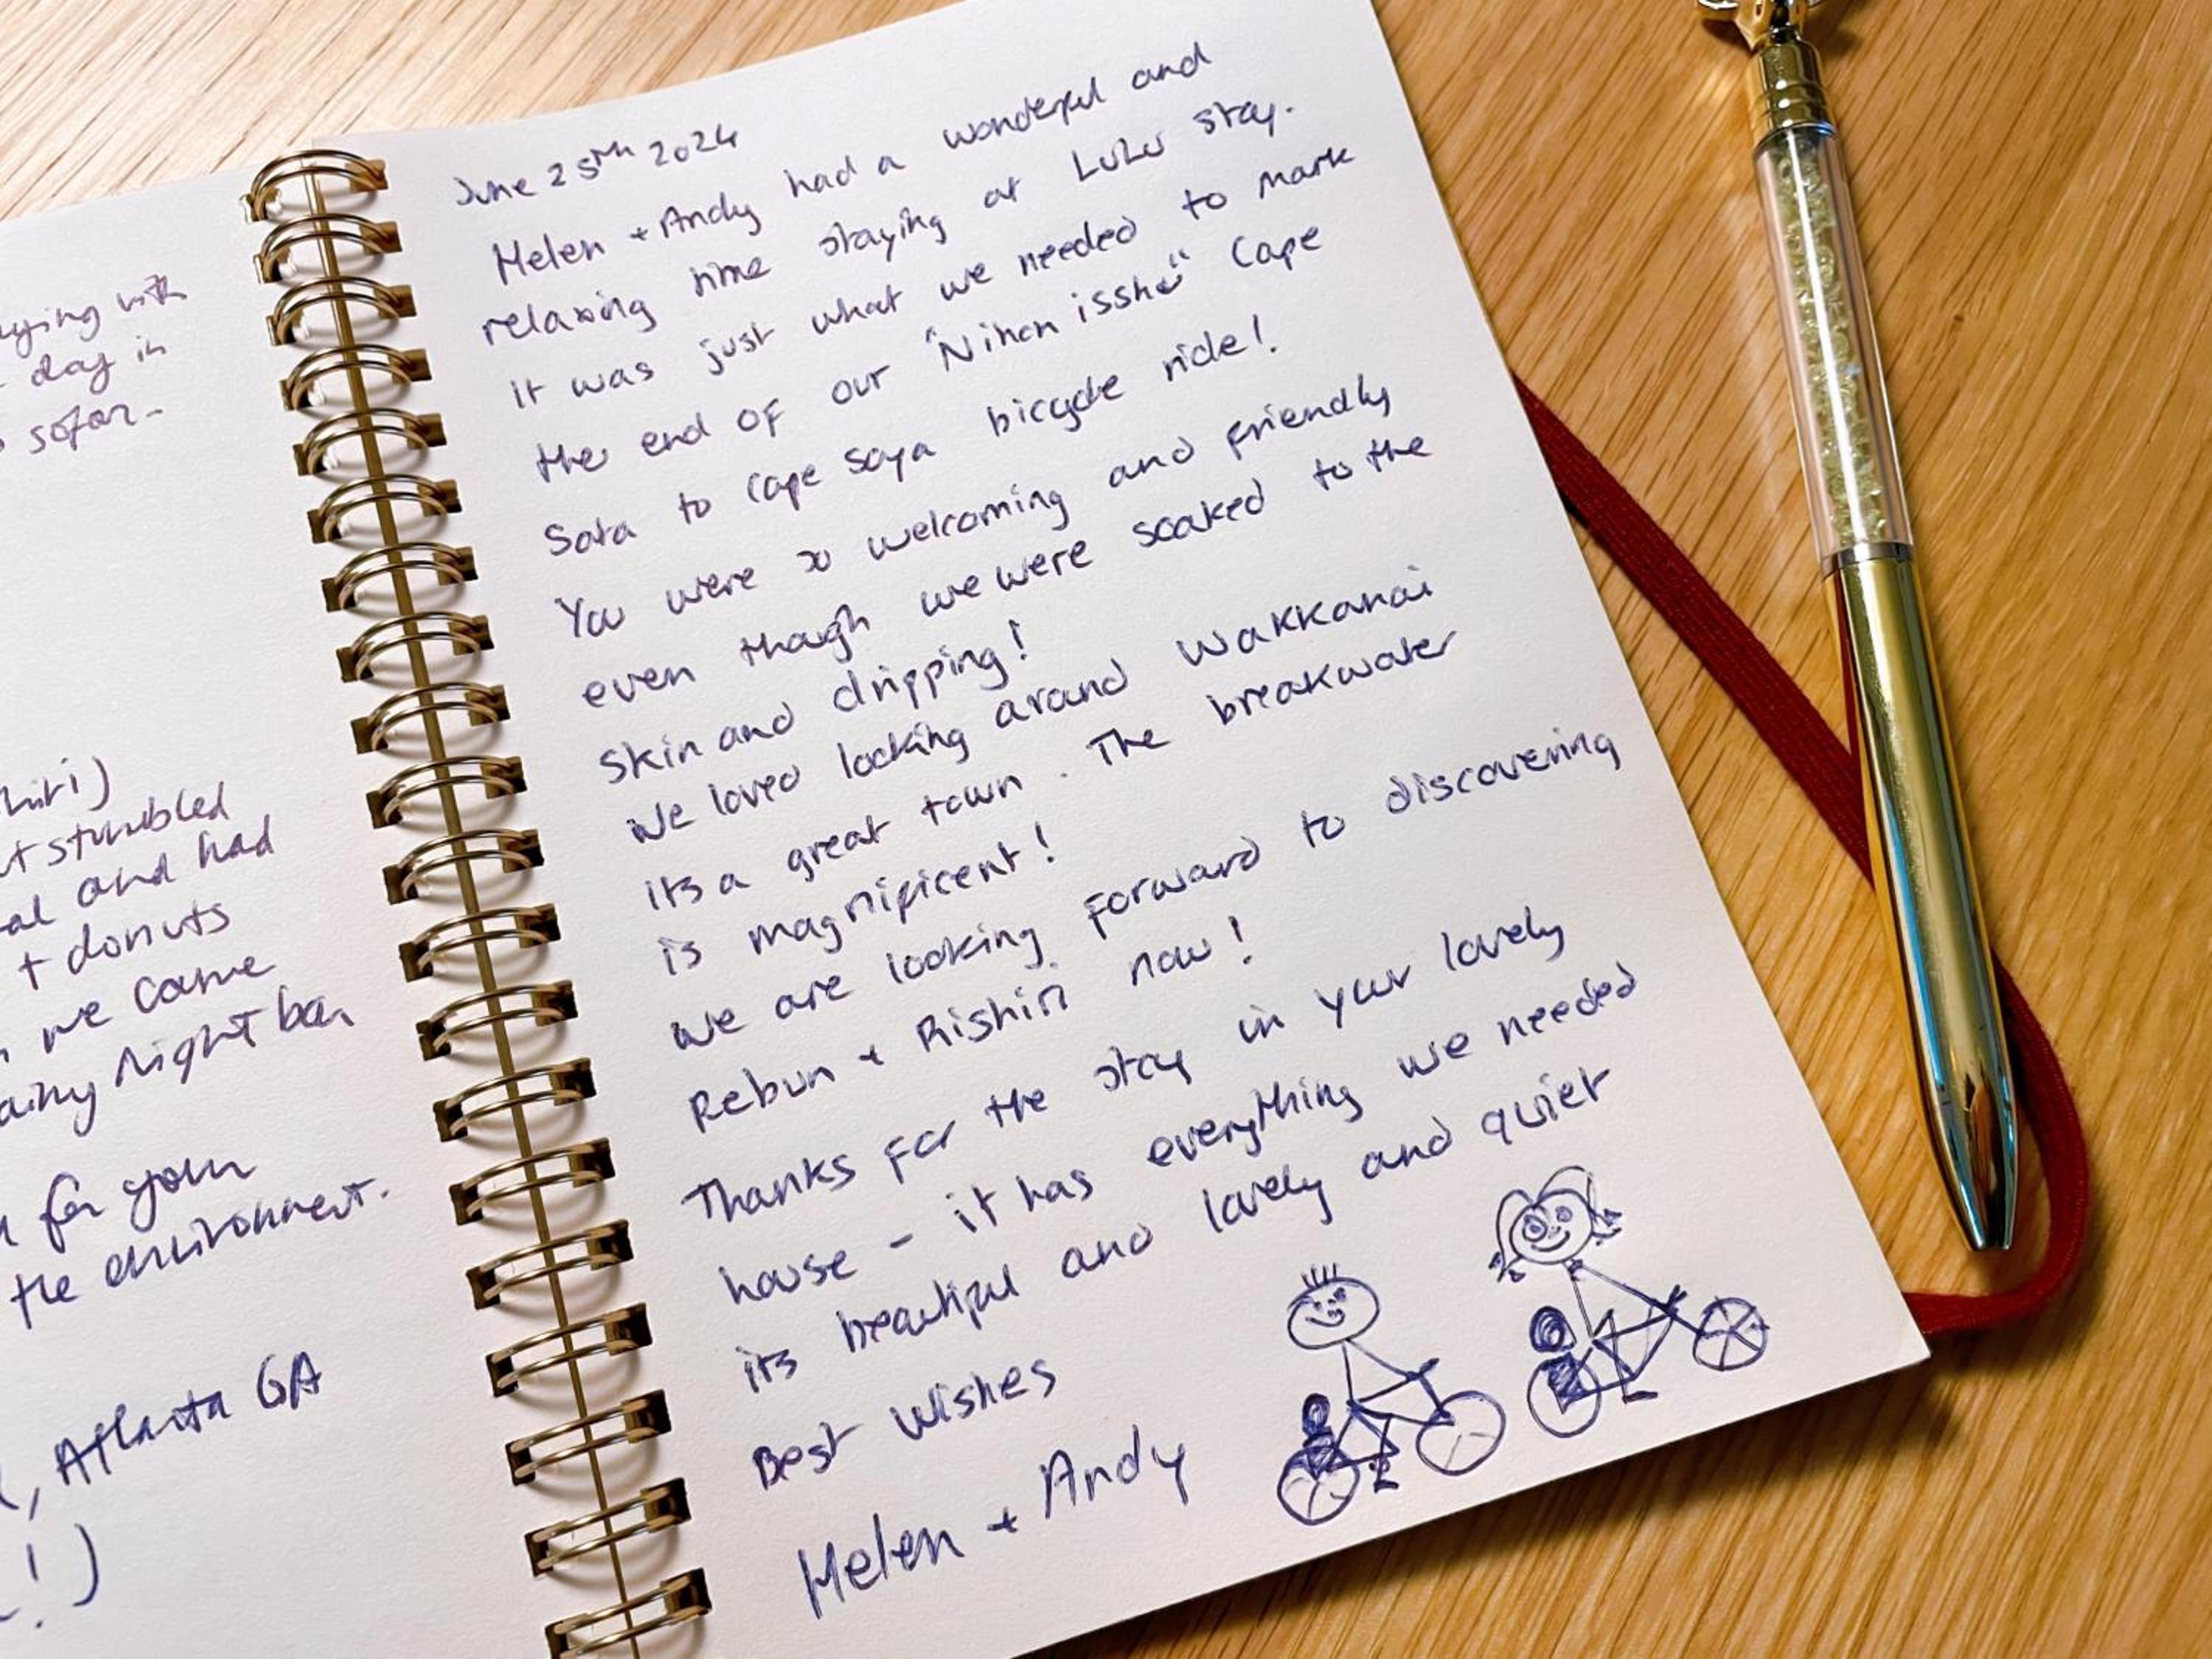 ying with
day in
sofar-
hiri)
t stumbled
al and had
+ donuts
we came
ainy Night bar
for your
the environment.
, Atlanta GA
! )
June 25th 2024
Helen + Andy had a wonderful and
relaxing time staying at LuLu stay.
It was just what we needed to mark
the end of our "Nihon isshu" Cape
Sata to Cape Soya bicycle ride!
You were so welcoming and friendly
even though we were soaked to the
skin and dripping!
We loved looking around Wakkanai
its a great town. The breakwater
is magnificent!
We are looking forward to discovering
Rebun + Rishiri now!
Thanks for the stay in your lovely
house - it has everything we needed
its beautiful and lovely and quiet
Best Wishes
Helen + Andy